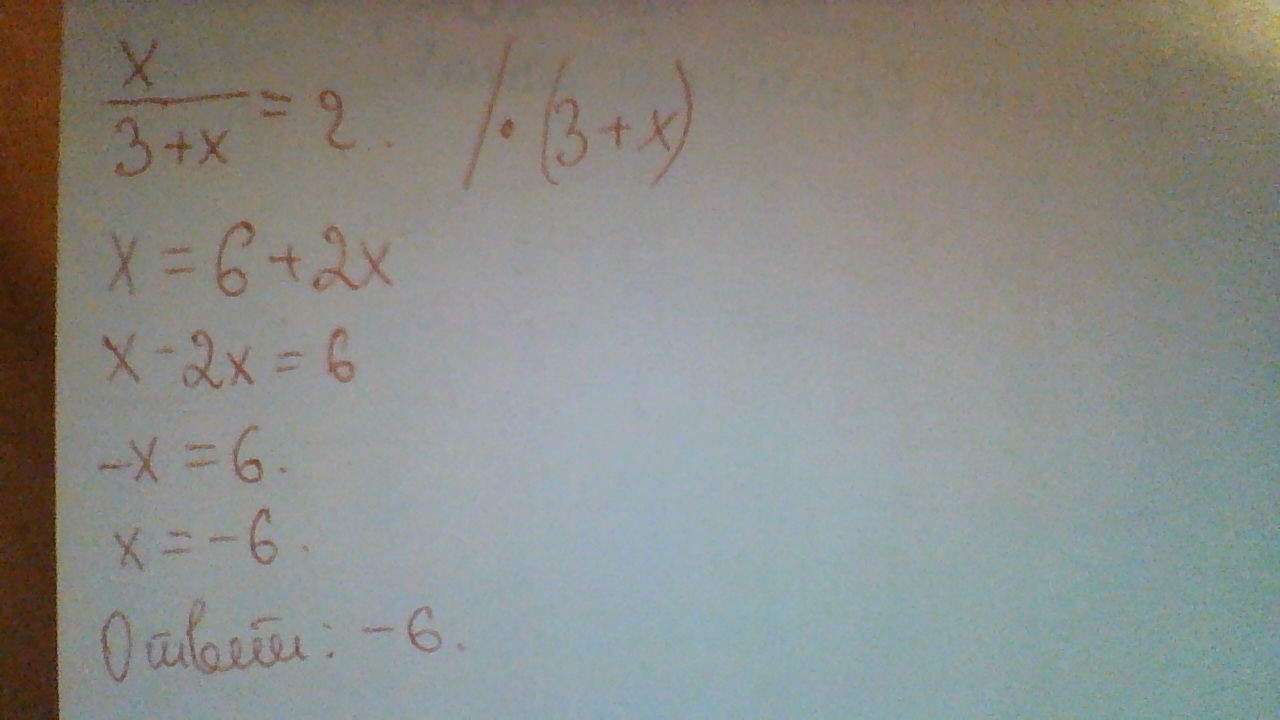 x/(3+x) = 2. /·(3+x)
x = 6+2x
x-2x = 6
-x = 6.
x = -6.
Ответ: -6.